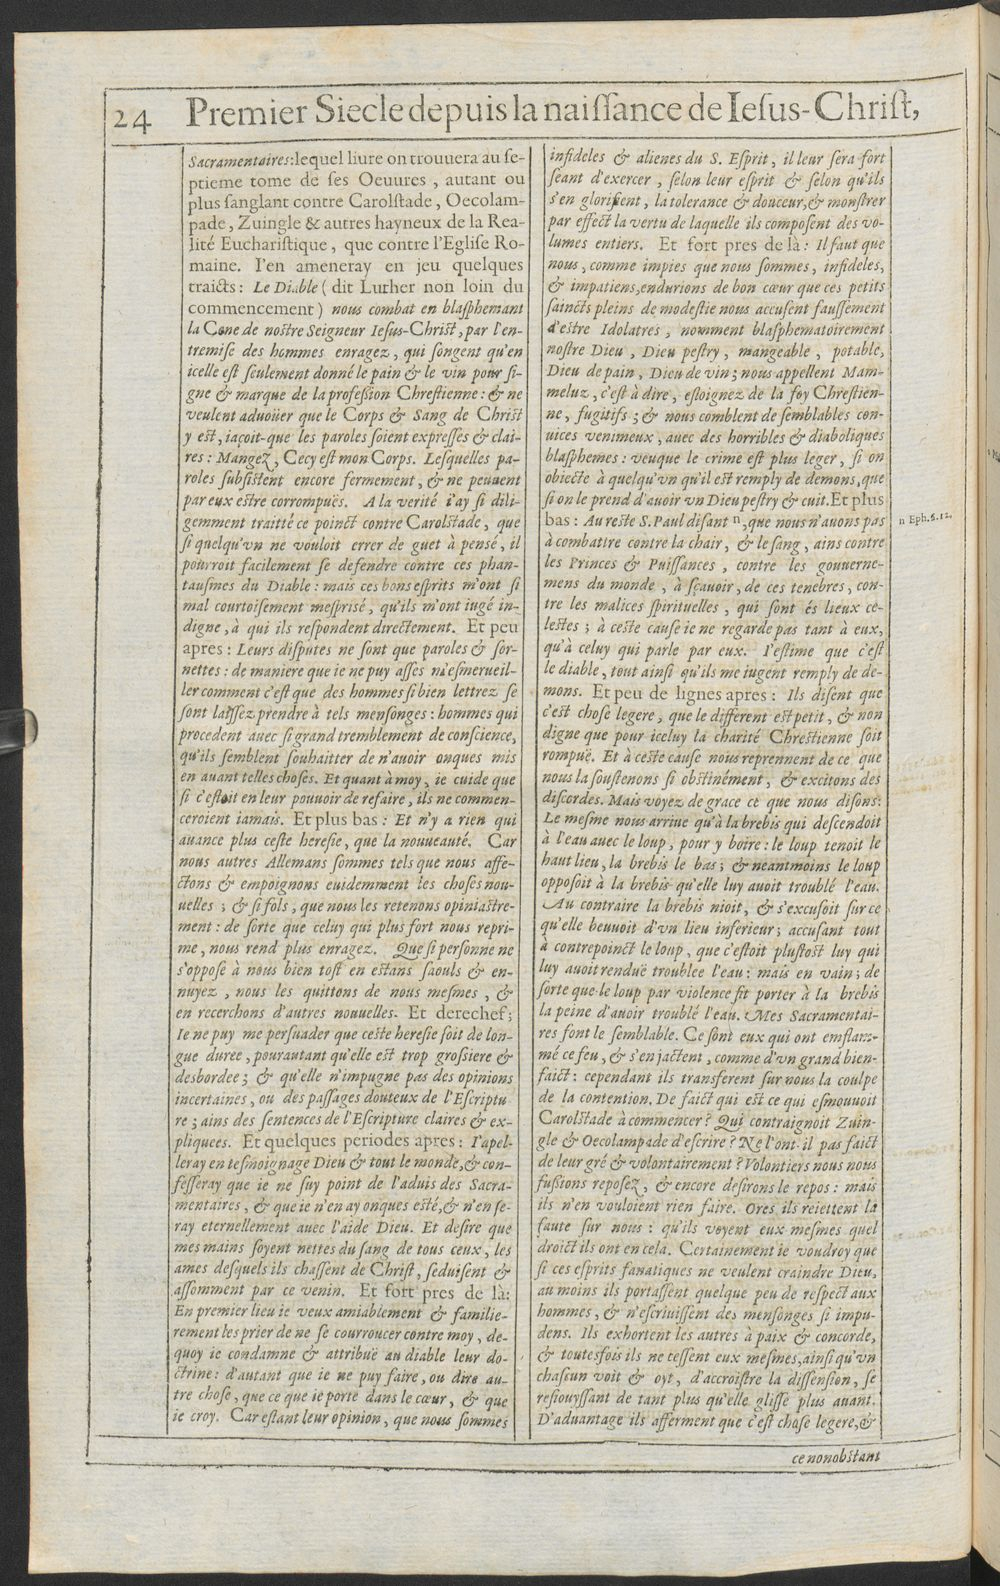 24 Premier Siecle depuis la naiſſance de Ieſus-Chriſt,
Sacramentaires: lequel liure on trouuera au ſe-
ptieme tome de ſes Oeuures, autant ou
plus ſanglant contre Carolſtade, Oecolam-
pade, Zuingle & autres hayneux de la Rea-
lité Euchariſtique, que contre l'Egliſe Ro-
maine. I'en ameneray en jeu quelques
traicts: Le Diable (dit Luther non loin du
commencement) nous combat en blaſphemant
la Cene de noſtre Seigneur Ieſus-Chriſt, par l'en-
tremiſe des hommes enragez, qui ſongent qu'en
icelle eſt ſeulement donné le pain & le vin pour ſi-
gne & marque de la profeſſion Chreſtienne: & ne
veulent aduoüer que le Corps & Sang de Chriſt
y eſt, iaçoit-que les paroles ſoient expreſſes & clai-
res: Mangez, Cecy eſt mon Corps. Leſquelles pa-
roles ſubſiſtent encore fermement, & ne peuuent
par eux eſtre corrompuës. A la verité i'ay ſi dili-
gemment traitté ce poinct contre Carolſtade, que
ſi quelqu'vn ne vouloit errer de guet à pensé, il
pourroit facilement ſe defendre contre ces phan-
tauſmes du Diable: mais ces bons eſprits m'ont ſi
mal courtoiſement meſpriſé, qu'ils m'ont iugé in-
digne, à qui ils reſpondent directement. Et peu
apres: Leurs diſputes ne ſont que paroles & ſor-
nettes: de maniere que ie ne puy aſſes m'eſmerueil-
ler comment c'eſt que des hommes ſi bien lettrez ſe
ſont laiſſez prendre à tels menſonges: hommes qui
procedent auec ſi grand tremblement de conſcience,
qu'ils ſemblent ſouhaitter de n'auoir onques mis
en auant telles choſes. Et quant à moy, ie cuide que
ſi c'eſtoit en leur pouuoir de refaire, ils ne commen-
ceroient iamais. Et plus bas: Et n'y a rien qui
auance plus ceſte hereſie, que la nouueauté. Car
nous autres Allemans ſommes tels que nous affe-
ctons & empoignons euidemment les choſes nou-
uelles; & ſi fols, que nous les retenons opiniaſtre-
ment: de ſorte que celuy qui plus fort nous repri-
me, nous rend plus enragez. Que ſi perſonne ne
s'oppoſe à nous bien toſt en eſtans ſaouls & en-
nuyez, nous les quittons de nous meſmes, &
en recerchons d'autres nouuelles. Et derechef;
Ie ne puy me perſuader que ceſte hereſie ſoit de lon-
gue duree, pourautant qu'elle eſt trop groſſiere &
desbordee; & qu'elle n'impugne pas des opinions
incertaines, ou des paſſages douteux de l'Eſcriptu
re; ains des ſentences de l'Eſcripture claires & ex-
pliquees. Et quelques periodes apres: I'apel-
leray en teſmoignage Dieu & tout le monde, & con-
feſſeray que ie ne ſuy point de l'aduis des Sacra-
mentaires, & que ie n'en ay onques eſté, & n'en ſe-
ray eternellement auec l'aide Dieu. Et deſire que
mes mains ſoyent nettes du ſang de tous ceux, les
ames deſquels ils chaſſent de Chriſt, ſeduiſent &
aſſomment par ce venin. Et fort pres de là:
En premier lieu ie veux amiablement & familie-
rement les prier de ne ſe courroucer contre moy, de-
quoy ie condamne & attribuë au diable leur do-
ctrine: d'autant que ie ne puy faire, ou dire au-
tre choſe, que ce que ie porte dans le cœur, & que
ie croy. Car eſtant leur opinion, que nous ſommes
infideles & alienes du S. Eſprit, il leur ſera fort
ſeant d'exercer, ſelon leur eſprit & ſelon qu'ils
s'en glorifient, la tolerance & douceur, & monſtrer
par effect la vertu de laquelle ils compoſent des vo-
lumes entiers. Et fort pres de là: Il faut que
nous, comme impies que nous ſommes, infideles,
& impatiens, endurions de bon cœur que ces petits
ſaincts pleins de modeſtie nous accuſent fauſſement
d'eſtre Idolatres, nomment blaſphematoirement
noſtre Dieu, Dieu peſtry, mangeable, potable,
Dieu de pain, Dieu de vin; nous appellent Mam-
meluz, c'eſt à dire, eſloignez de la foy Chreſtien-
ne, fugitifs; & nous comblent de ſemblables con-
uices venimeux, auec des horribles & diaboliques
blaſphemes: veuque le crime eſt plus leger, ſi on
obiecte à quelqu'vn qu'il eſt remply de demons, que
ſi on le prend d'auoir vn Dieu peſtry & cuit. Et plus
bas: Au reſte S. Paul diſant n, que nous n'auons pas
à combattre contre la chair, & le ſang, ains contre
les Princes & Puiſſances, contre les gouuerne-
mens du monde, à ſçauoir, de ces tenebres, con-
tre les malices ſpirituelles, qui ſont és lieux ce-
leſtes; à ceſte cauſe ie ne regarde pas tant à eux,
qu'à celuy qui parle par eux. I'eſtime que c'eſt
le diable, tout ainſi qu'ils me iugent remply de de-
mons. Et peu de lignes apres: Ils diſent que
c'eſt choſe legere, que le different eſt petit, & non
digne que pour iceluy la charité Chreſtienne ſoit
rompuë. Et à ceſte cauſe nous reprennent de ce que
nous la ſouſtenons ſi obſtinément, & excitons des
diſcordes. Mais voyez de grace ce que nous diſons:
Le meſme nous arriue qu'à la brebis qui deſcendoit
à l'eau auec le loup, pour y boire: le loup tenoit le
haut lieu, la brebis le bas; & neantmoins le loup
oppoſoit à la brebis qu'elle luy auoit troublé l'eau.
Au contraire la brebis nioit, & s'excuſoit ſur ce
qu'elle beuuoit d'vn lieu inferieur; accuſant tout
à contrepoinct le loup, que c'eſtoit pluſtoſt luy qui
luy auoit renduë troublee l'eau: mais en vain; de
ſorte que le loup par violence fit porter à la brebis
la peine d'auoir troublé l'eau. Mes Sacramentai-
res font le ſemblable. Ce ſont eux qui ont enflam-
mé ce feu, & s'en jactent, comme d'vn grand bien-
faict: cependant ils tranſferent ſur nous la coulpe
de la contention. De faict qui eſt ce qui eſmouuoit
Carolſtade à commencer? Qui contraignoit Zuin-
gle & Oecolampade d'eſcrire? Ne l'ont-il pas faict
de leur gré & volontairement? Volontiers nous nous
fuſſions repoſez, & encore deſirons le repos: mais
ils n'en vouloient rien faire. Ores ils reiettent la
faute ſur nous: qu'ils voyent eux meſmes quel
droict ils ont en cela. Certainement ie voudroy que
ſi ces eſprits fanatiques ne veulent craindre Dieu,
au moins ils portaſſent quelque peu de reſpect aux
hommes, & n'eſcriuiſſent des menſonges ſi impu-
dens. Ils exhortent les autres à paix & concorde,
& toutesfois ils ne ceſſent eux meſmes, ainſi qu'vn
chaſcun voit & oyt, d'accroiſtre la diſſenſion, ſe
reſiouyſſant de tant plus qu'elle gliſſe plus auant.
D'aduantage ils afferment que c'eſt choſe legere, &
n Eph. 6. 12.
ce nonobſtant